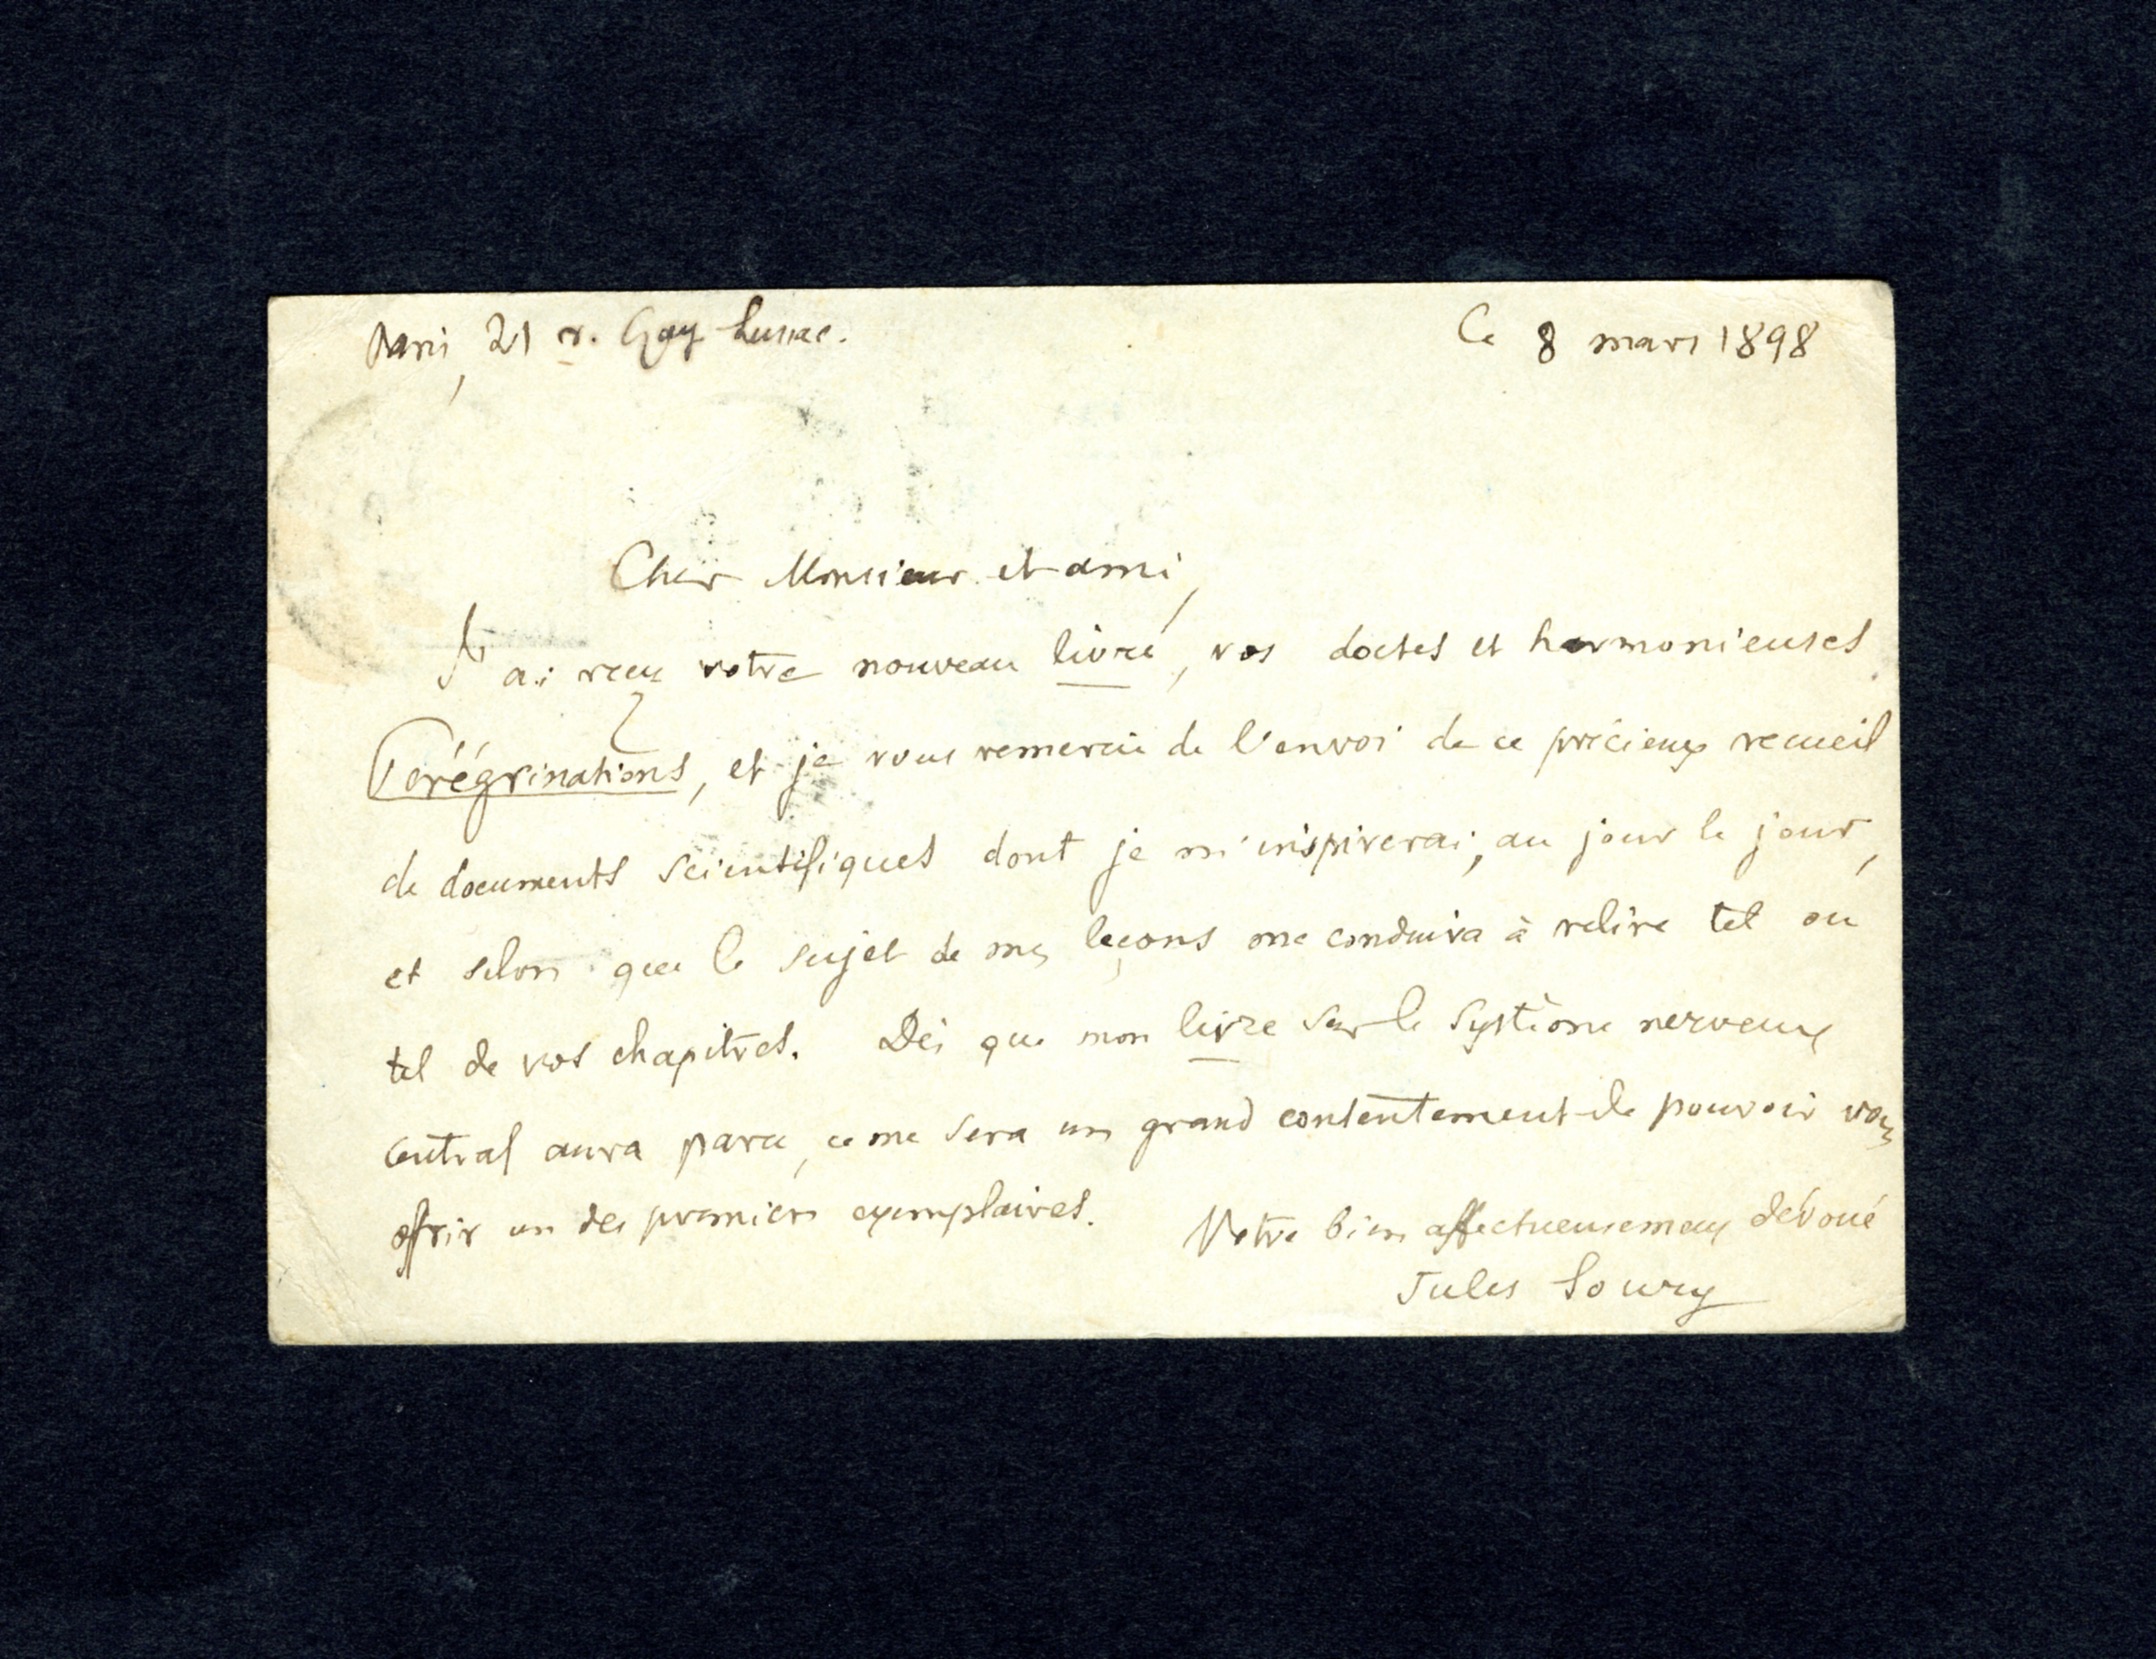 Paris, 21 r. Gay Lussac.
Ce 8 mars 1898
Cher Monsieur et ami,
J'ai reçu votre nouveau livre, vos doctes et harmonieuses
Pérégrinations, et je vous remercie de l'envoi de ce précieux recueil
de documents scientifiques dont je m'inspirerai, au jour le jour,
et selon que le sujet de mes leçons me conduira à relire tel ou
tel de vos chapitres. Dès que mon livre sur le système nerveux
central aura paru, ce me sera un grand contentement de pouvoir vous
offrir un des premiers exemplaires.
Votre bien affectueusement dévoué
Jules Soury